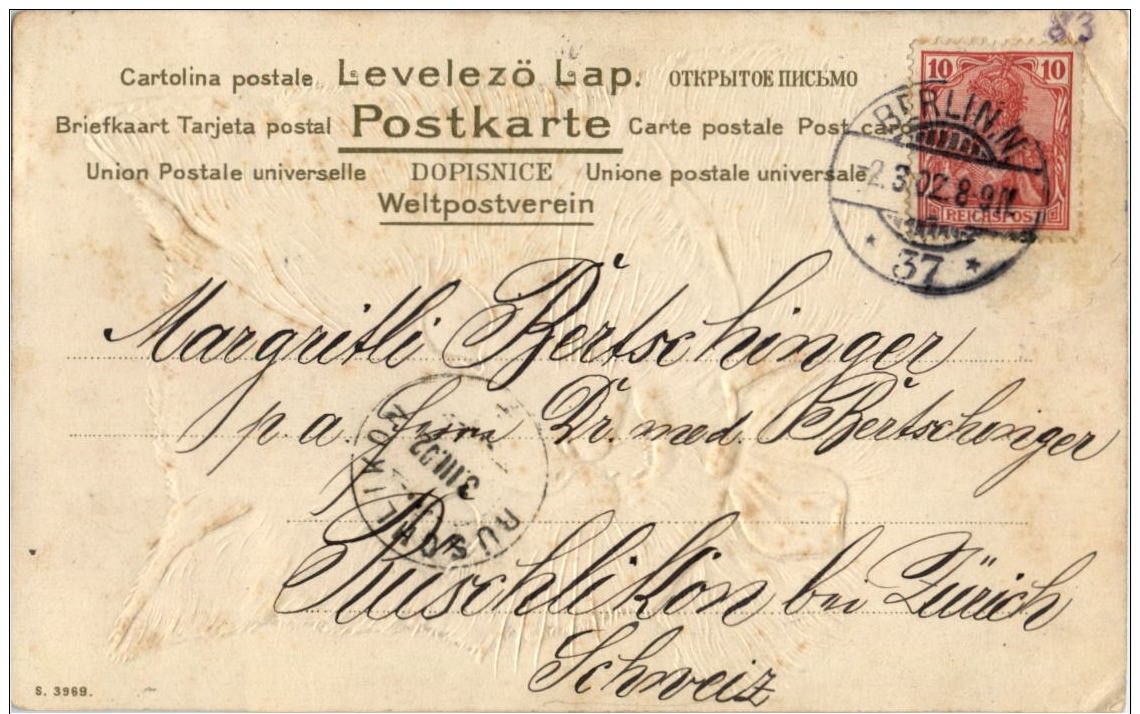 83
Cartolina postale Levelezö Lap. ОТКРЫТОЕ ПИСЬМО
Briefkaart Tarjeta postal Postkarte Carte postale Post card
Union Postale universelle DOPISNICE Unione postale universale
Weltpostverein
10 10
REICHSPOST
BERLIN.N.
2.3.02.8-9N.
37
Margritli Bertschinger
p. a. Dr. med Bertschinger
RÜSCHLIKON
3.III.02
Rüschlikon bei Zürich
Schweiz
S. 3969.